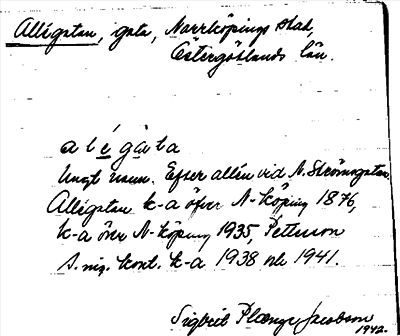 Allégatan, gata, Norrköpings stad,
Östergötlands län.
a l é g a ̀ t a
Ungt namn. Efter allén vid N. Strömsgatan.
Allégatan k-a öfver N-köping 1876,
k-a över N-köping 1935, Pettersson
k-a 1938 1941.
Sigbrit Plænge Jacobson
1942.